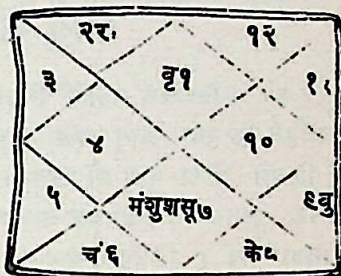 २रः १२
३ वृ१ ११
४ १०
५ मंशुशसू७ ९वु
चं६ के८